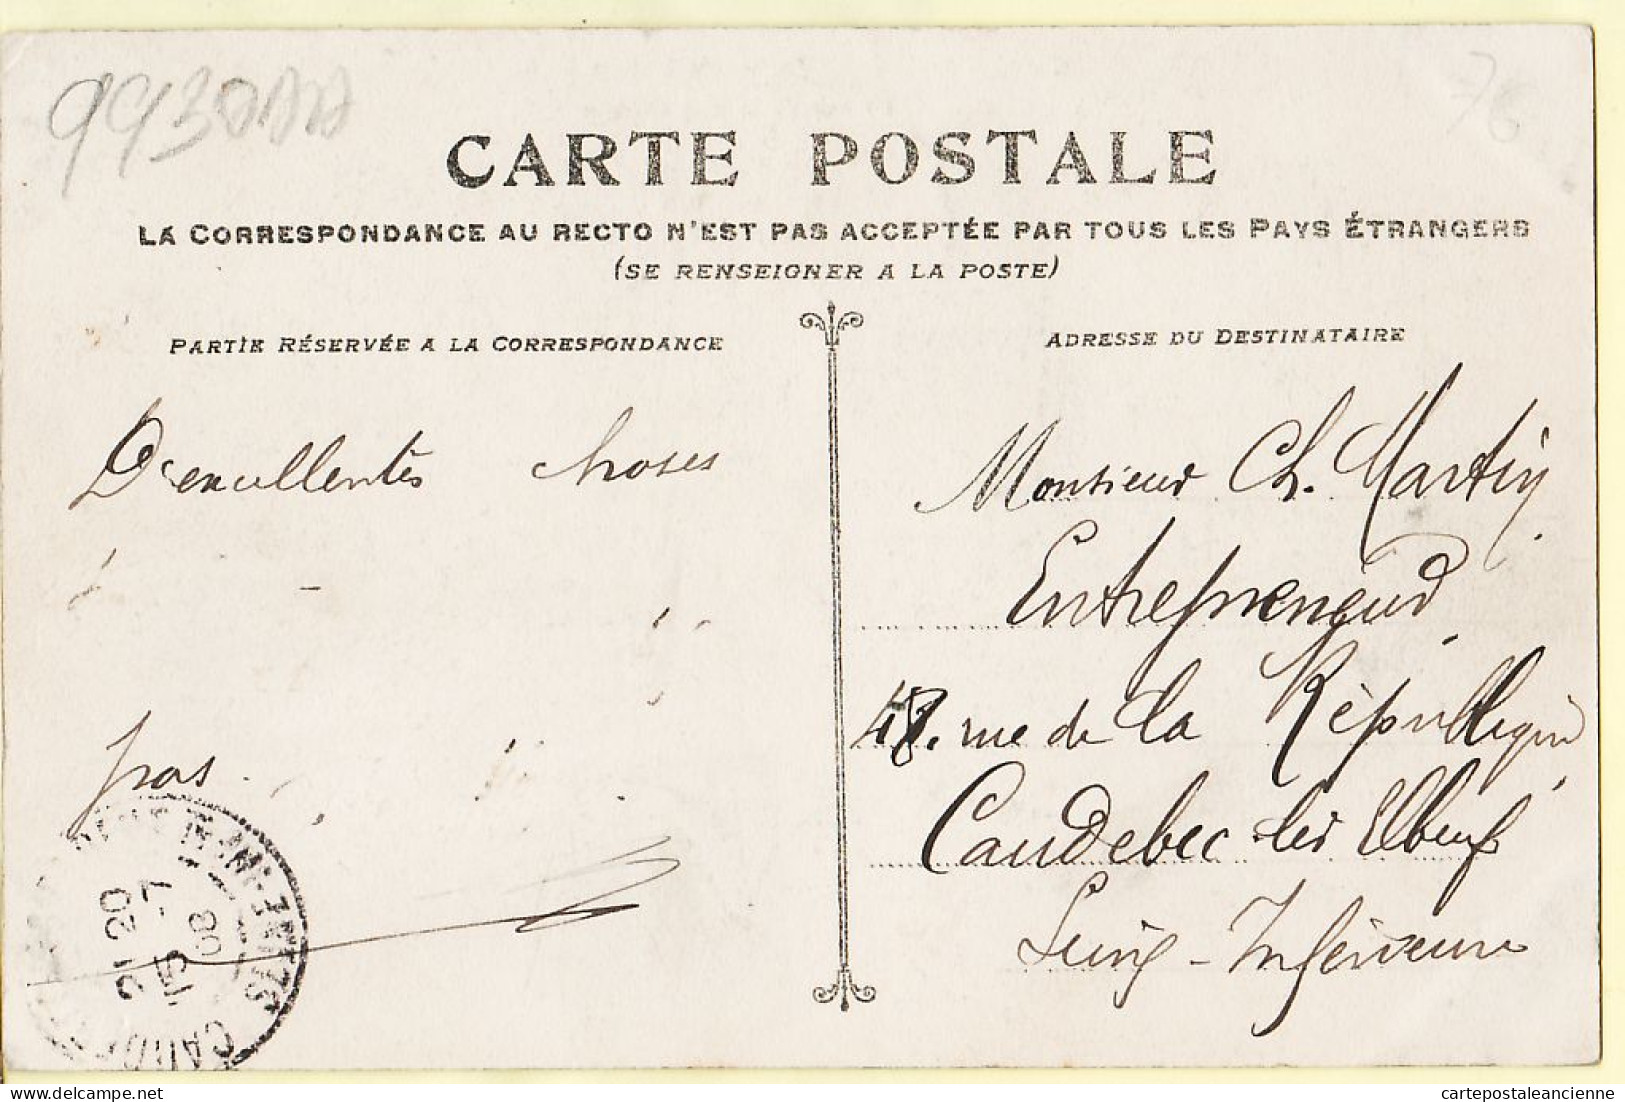 993AAA
76
CARTE POSTALE
LA CORRESPONDANCE AU RECTO N'EST PAS ACCEPTÉE PAR TOUS LES PAYS ÉTRANGERS
(SE RENSEIGNER A LA POSTE)
PARTIE RÉSERVÉE A LA CORRESPONDANCE
D'excellentes choses
à
ADRESSE DU DESTINATAIRE
Monsieur Ch. Martin
Entrepreneur
48. rue de la République
Caudebec-les Elbeuf
Seine-Inférieure
CAUDEBEC-LES-ELBEUF SEINE-INFRE
21 20
15-7
08
cartepostaleancienne